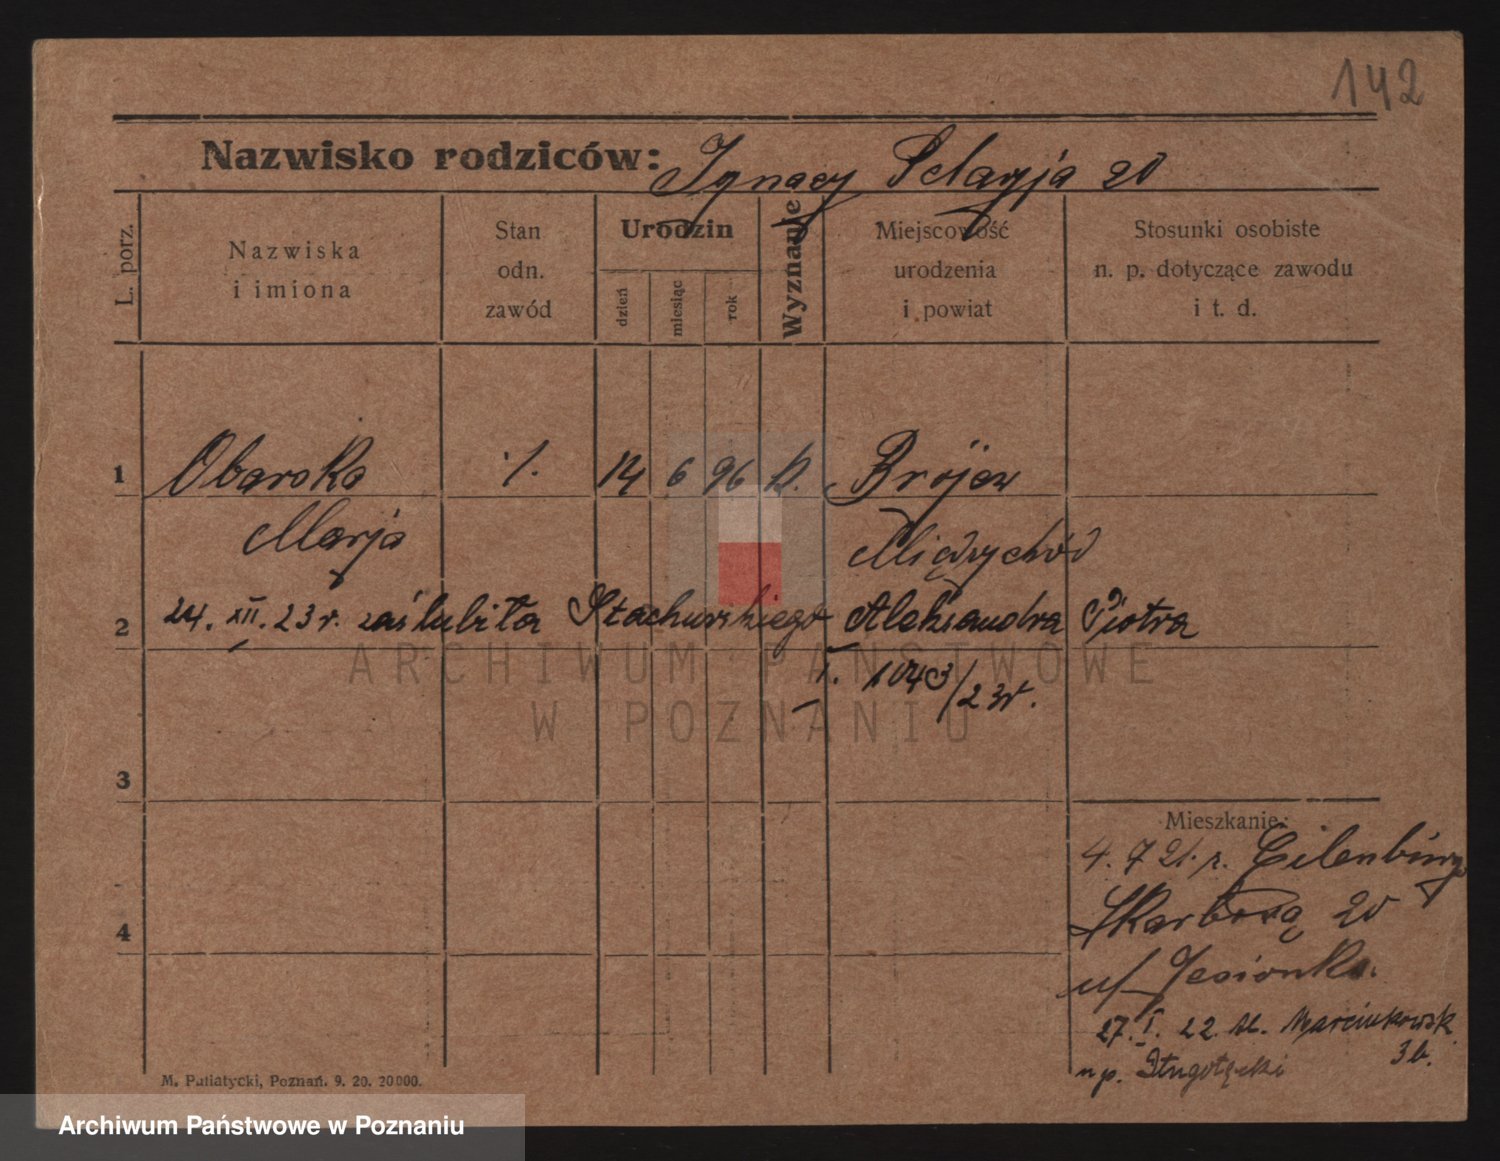 142
Nazwisko rodziców: Ignacy Pelagja
L. porz.
Nazwiska
i imiona
Stan
odn.
zawód
Urodzin
dzień
miesiąc
rok
Wyznanie
Miejscowość
urodzenia
i powiat
Stosunki osobiste
n. p. dotyczące zawodu
i t. d.
1 Obarska ·/. 14 6 96 k. Brójce
Marja Międzychód
2 24. XII. 23 r. zaślubiła Stachurskiego Aleksandra Piotra
T. 1043/23r.
ARCHIWUM PAŃSTWOWE
W POZNANIU
3
Mieszkanie:
4. 7 21. r. Eilenburg
4 Skarbową 20
u/ Jesionka.
27. I. 22. ul. Marcinkowsk.
3 b.
u p. Długołęcki
M. Putiatycki, Poznań. 9. 20. 20000.
Archiwum Państwowe w Poznaniu